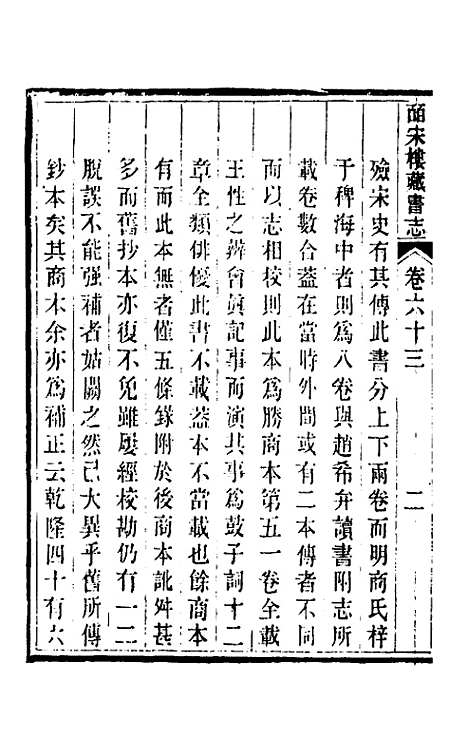 皕宋樓藏書志　卷六十三　二
殮宋史有其傳此書分上下兩卷而明商氏梓
于稗海中者則爲八卷與趙希弁讀書附志所
載卷數合蓋在當時外間或有二本傳者不同
而以志相校則此本爲勝商本第五一卷全載
王性之辨會眞記事而演其事爲鼓子詞十二
章全類俳優此書不載蓋本不當載也餘商本
有而此本無者僅五條錄附於後商本訛舛甚
多而舊抄本亦復不免雖屡經校勘仍有一二
脫誤不能强補者姑闕之然已大異乎舊所傳
鈔本矣其商本余亦爲補正云乾隆四十有六